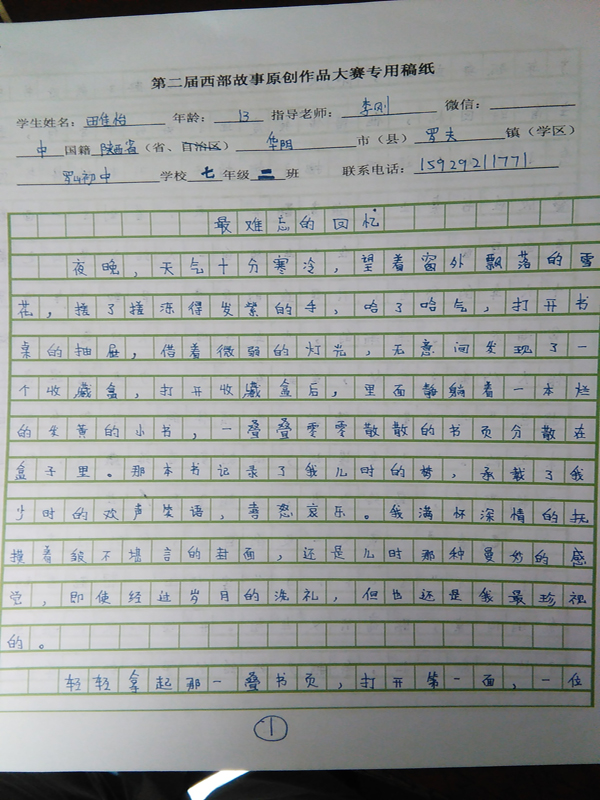 第二届西部故事原创作品大赛专用稿纸
学生姓名：田佳怡 年龄：13 指导老师：李刚 微信：
中 国籍 陕西省（省、自治区） 华阴 市（县） 罗夫 镇（学区）
罗山初中 学校 七 年级 二 班 联系电话：15929211771
最难忘的回忆
夜晚，天气十分寒冷，望着窗外飘落的雪
花，搓了搓冻得发紫的手，哈了哈气，打开书
桌的抽屉，借着微弱的灯光，无意间发现了一
个收藏盒，打开收藏盒后，里面静躺着一本烂
的发黄的小书，一叠叠零零散散的书页分散在
盒子里。那本书记录了我儿时的梦，承载了我
少时的欢声笑语，喜怒哀乐。我满怀深情的抚
摸着皱不堪言的封面，还是儿时那种曼妙的感
觉，即使经过岁月的洗礼，但也还是我最珍视
的。
轻轻拿起那一叠书页，打开第一面，一位
1